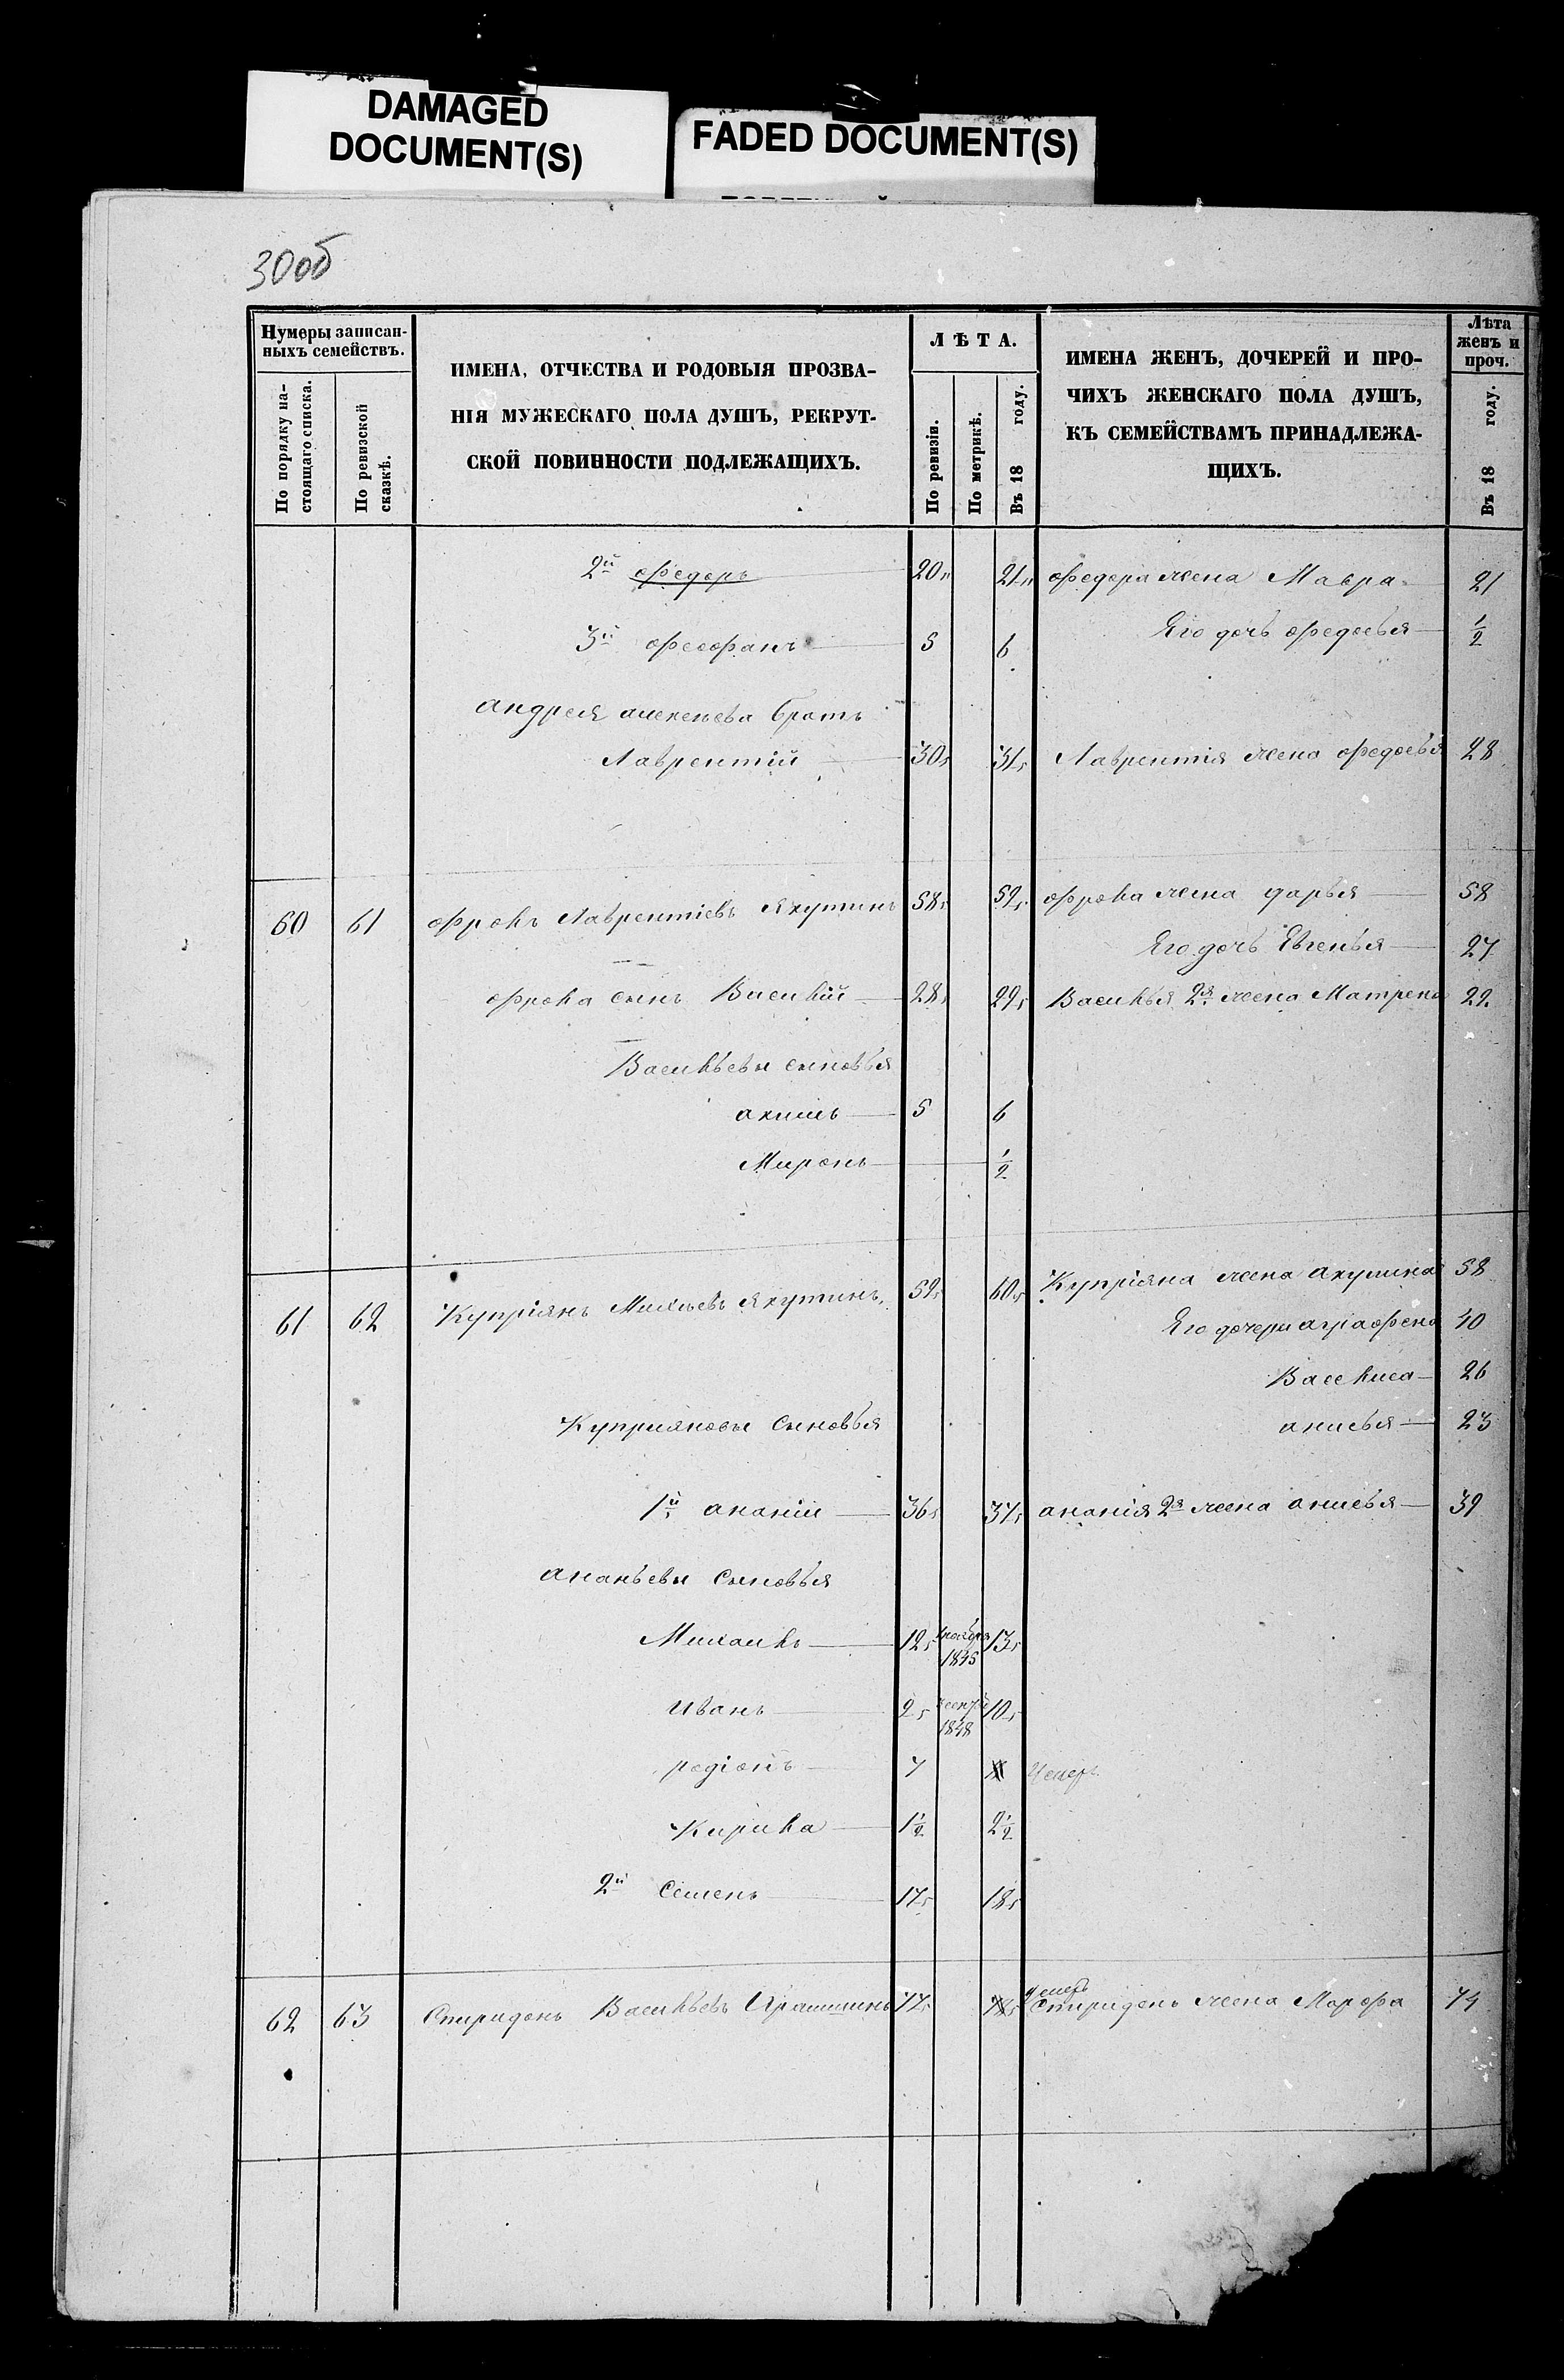 DAMAGED
DOCUMENT(S)
FADED DOCUMENT(S)
30об
Нумеры записан-
ныхъ семействъ.
По порядку на-
стоящаго списка.
По ревизской
сказкѣ.
ИМЕНА, ОТЧЕСТВА И РОДОВЫЯ ПРОЗВА-
НІЯ МУЖЕСКАГО ПОЛА ДУШЪ, РЕКРУТ-
СКОЙ ПОВИННОСТИ ПОДЛЕЖАЩИХЪ.
ЛѢТА.
По ревизіи.
По метрикѣ.
Въ 18 году.
ИМЕНА ЖЕНЪ, ДОЧЕРЕЙ И ПРО-
ЧИХЪ ЖЕНСКАГО ПОЛА ДУШЪ,
КЪ СЕМЕЙСТВАМЪ ПРИНАДЛЕЖА-
ЩИХЪ.
Лѣта
женъ и
проч.
Въ 18 году.
2й Федоръ 20 21 Федора жена Мавра 21
Его дочь Федосья 1/2
3й Феофанъ 5 6
Андрея Алексѣева братъ
Лаврентій 30 31 Лаврентія жена Федосья 28
60 61 Фролъ Лаврентіевъ Якутинъ 58 59 Фрола жена Дарья 58
Его дочь Евгенья 27
Фрола сынъ Василій 28 29 Василья 2я жена Матрена 22
Васильевы сыновья
Акимъ 5 6
Миронъ 1/2
61 62 Купріянъ Михѣевъ Якутинъ 59 60 Купріяна жена Акулина 58
Его дочери Аграфена 40
Васелиса 26
Анисья 23
Куприяновы сыновья
1й Ананій 36 37 Ананія 2я жена Анисья 39
Ананьевы сыновья
Михаилъ 12 ноября 1845 13
Иванъ 9 1848 10
Родіонъ 7 Умеръ
Кирила 1 1/2 2 1/2
2й Семенъ 17 18
62 63 Спиридонъ Васильевъ 77 умеръ
Спиридонъ жена Марфа 74